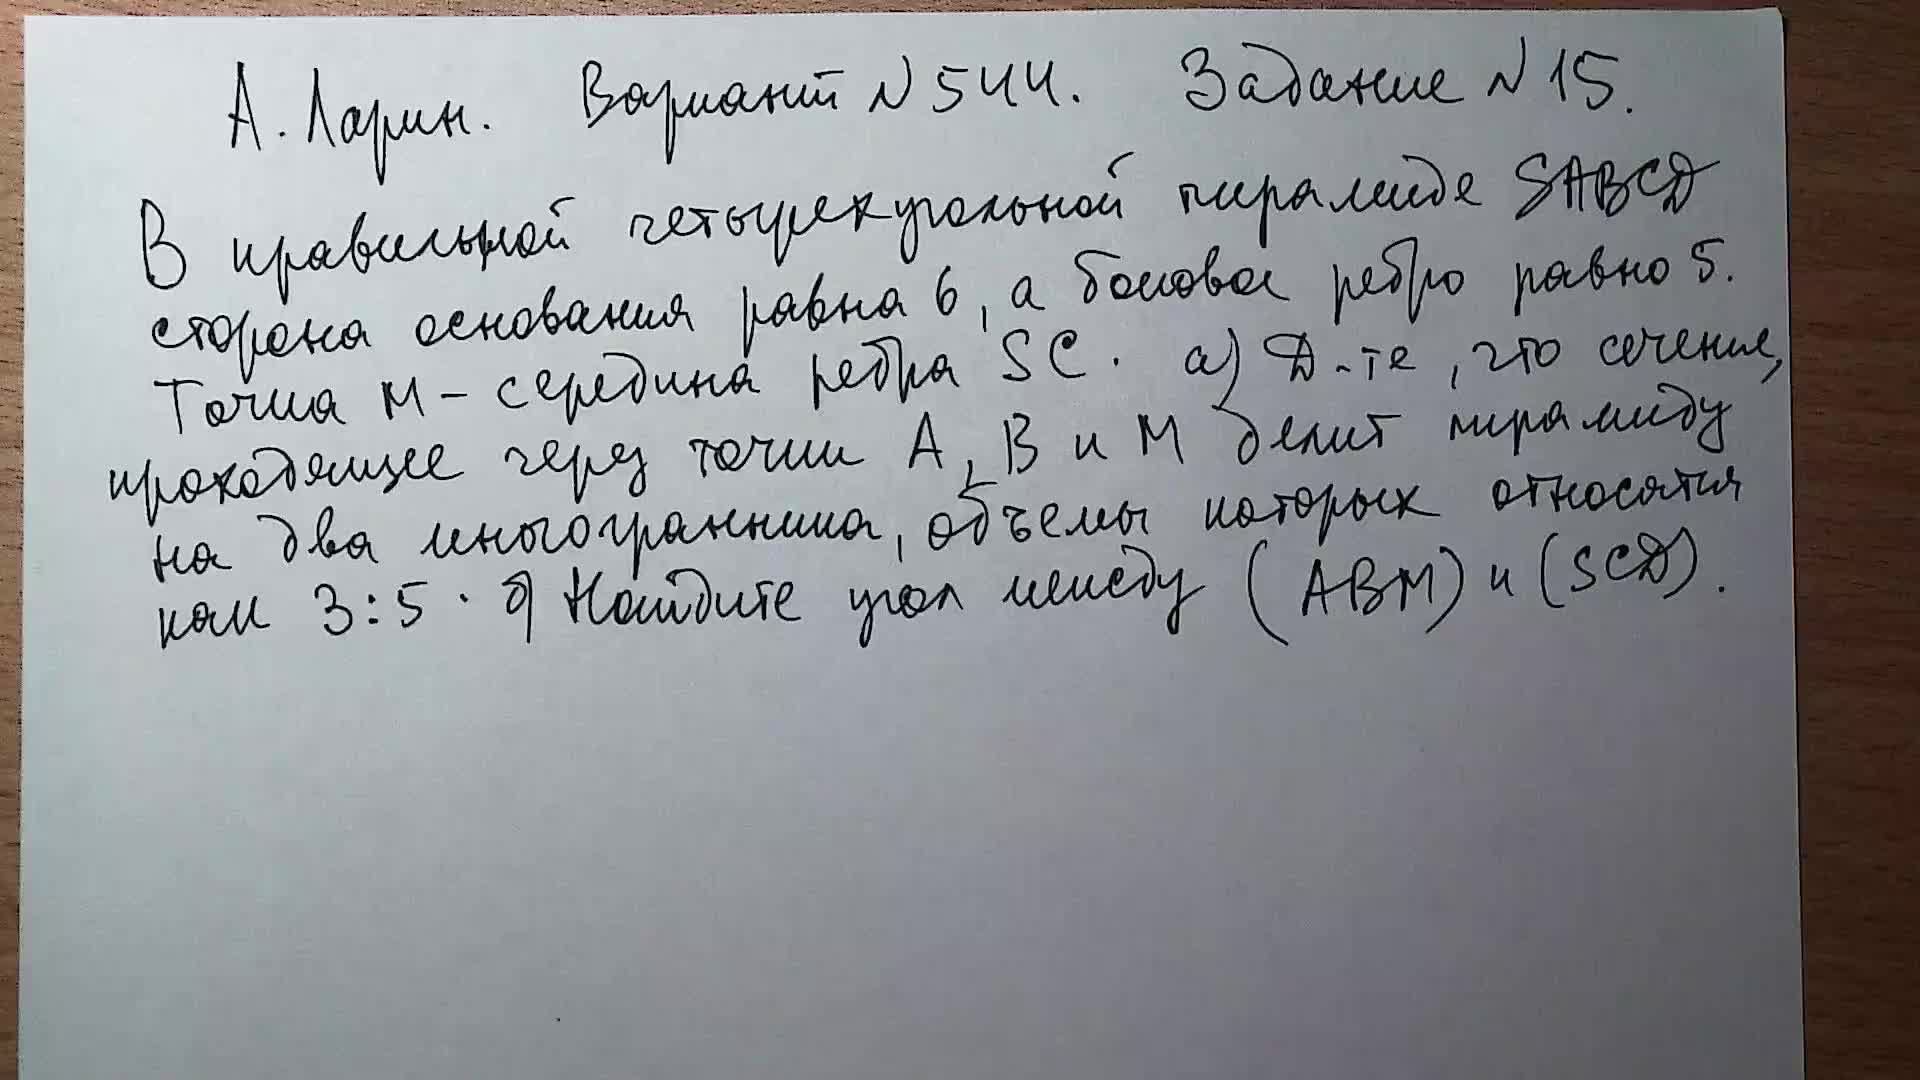 А. Ларин. Вариант N 544. Задание N 15.
В правильной четырехугольной пирамиде SABCD
сторона основания равна 6, а боковое ребро равно 5.
Точка М - середина ребра SC. а) Д-те, что сечение,
проходящее через точки А, В и М делит пирамиду
на два многогранника, объемы которых относятся
как 3:5. б) Найдите угол между (АВМ) и (SCD).